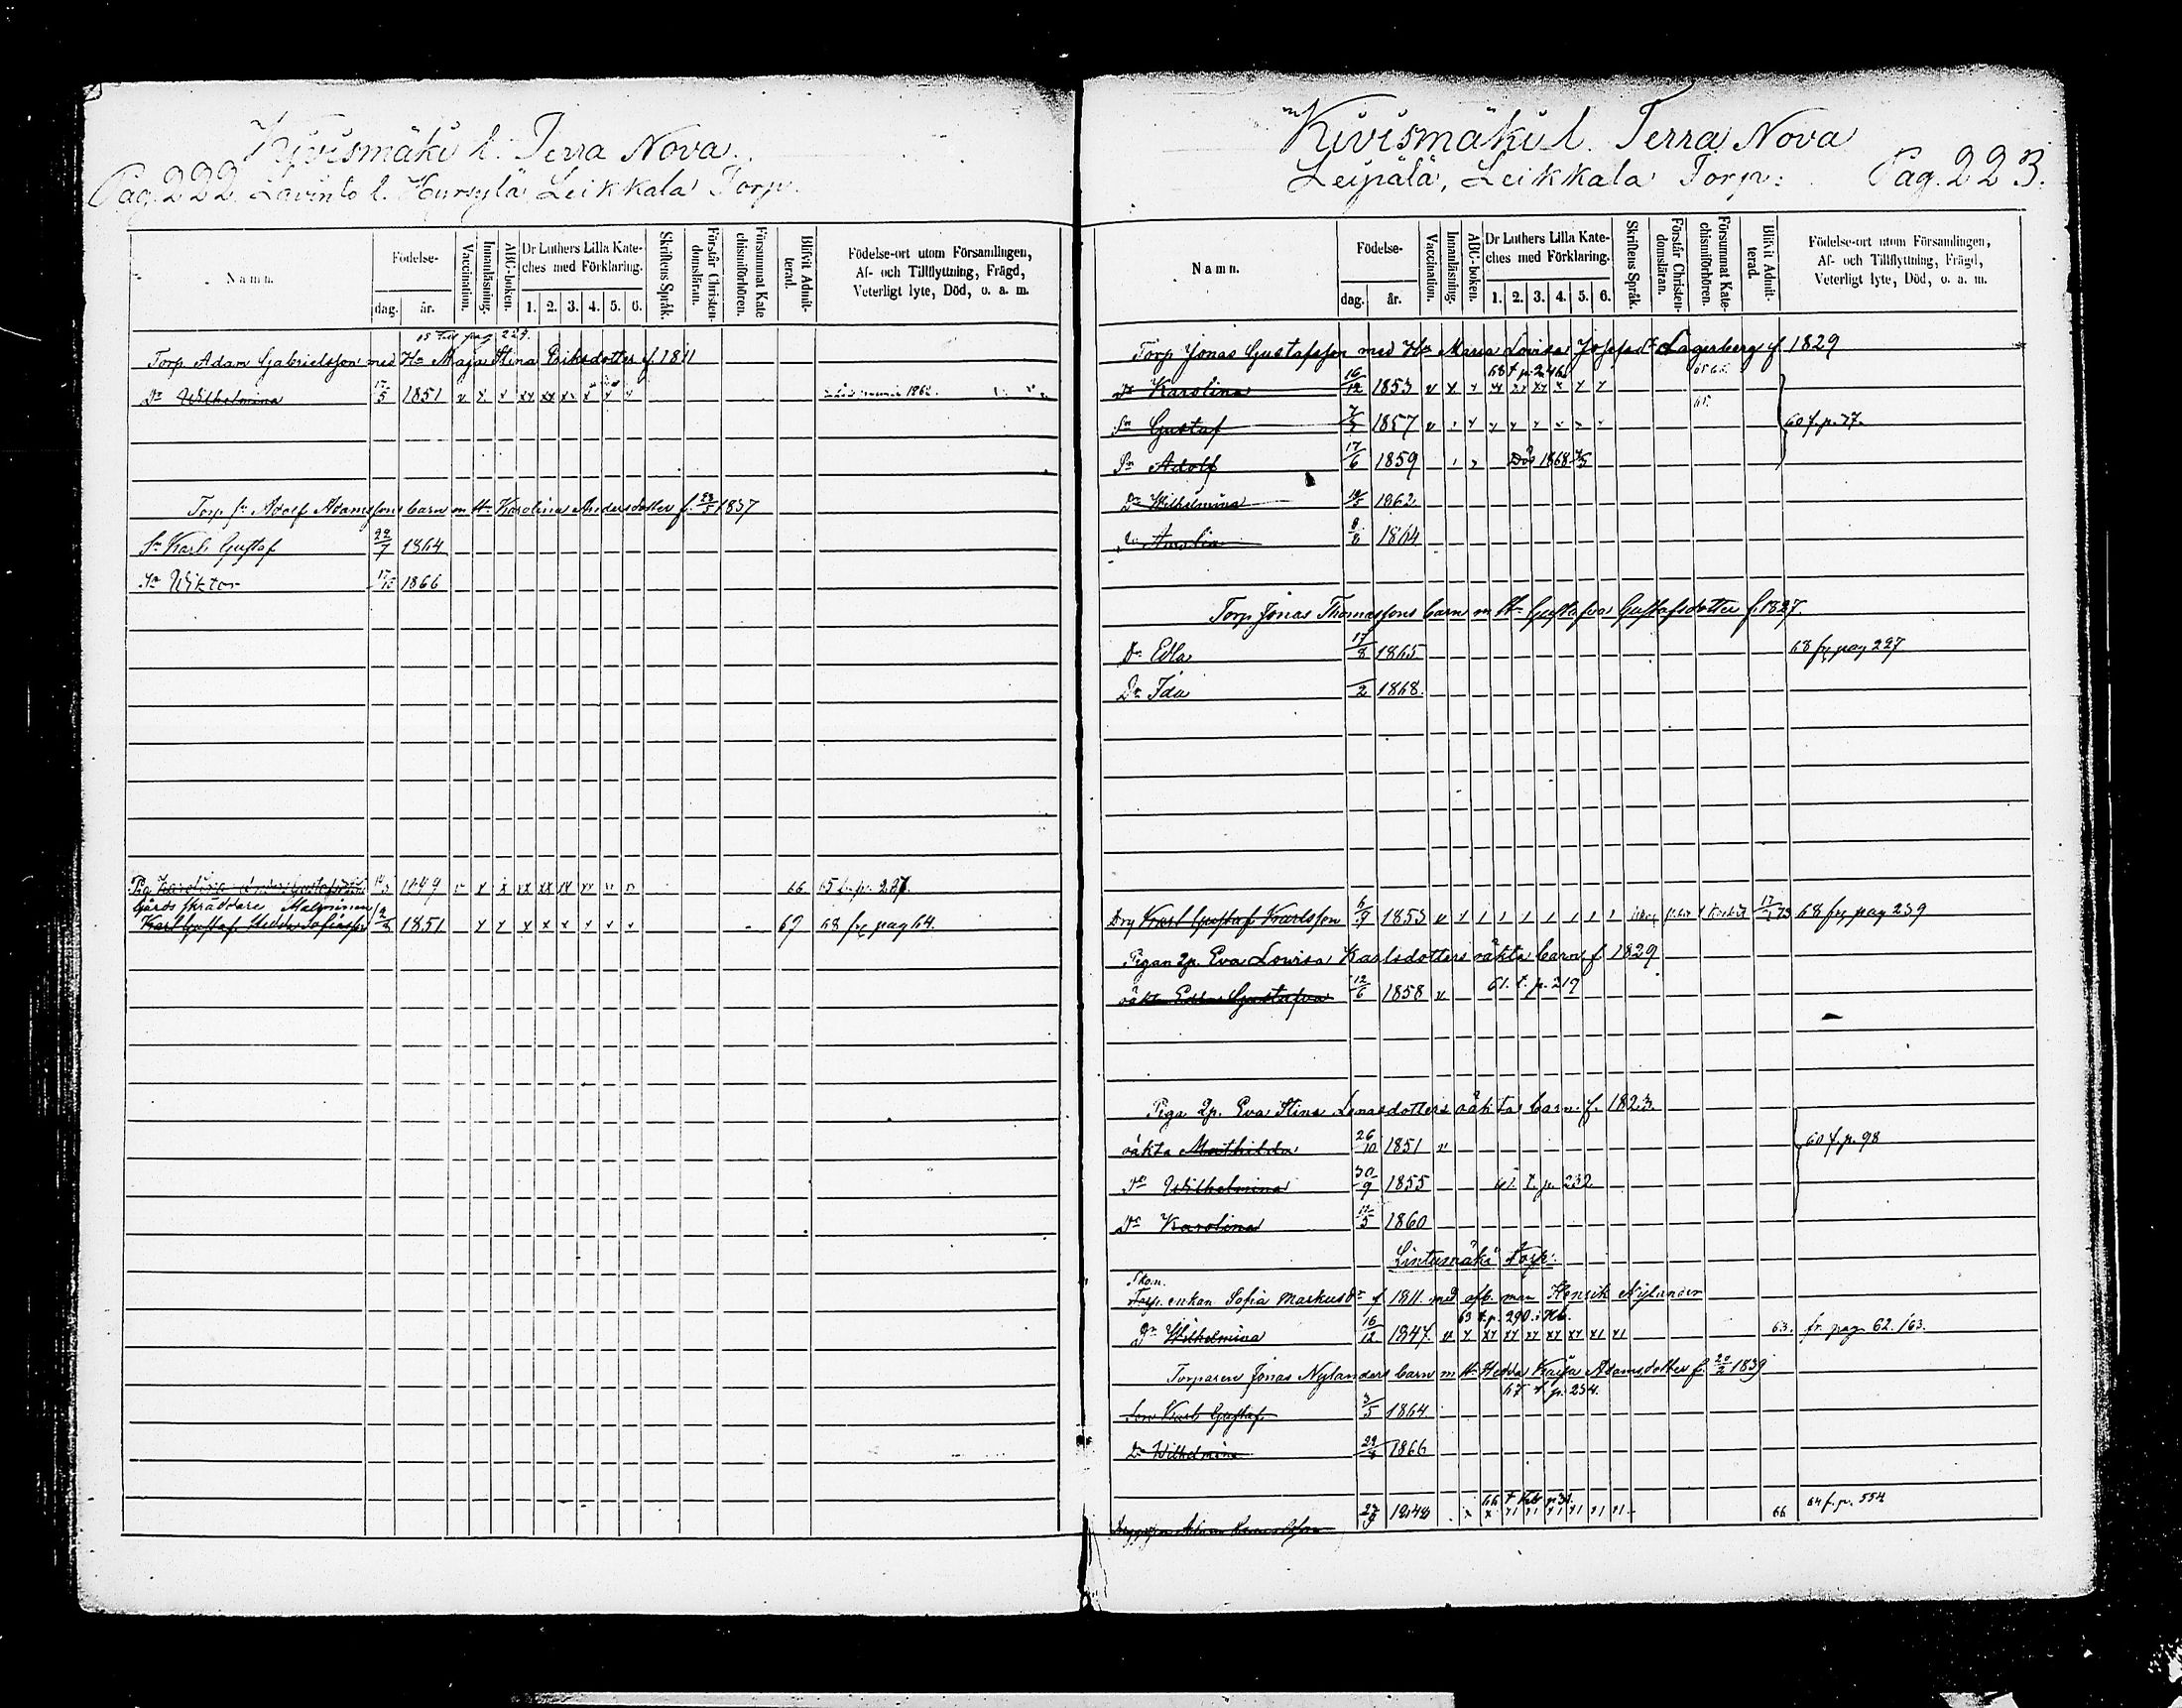 Kivismäki l. Terra Nova.
Pag. 222. Lavinto l. Hursylä, Leikkala Torp.
Namn.
Födelse-
dag.
år.
Vaccination.
Innanläsning.
ABC-boken.
Dr Luthers Lilla Kateches med Förklaring.
1. 2. 3. 4. 5. 6.
Skriftens Språk.
Förstår Christendomsläran.
Försummat Katechismiförhören.
Blifvit Admitterad.
Födelse-ort utom Församlingen,
Af- och Tillflyttning, Frägd,
Veterligt lyte, Död, o. a. m.
Torp. Adam Gabrielsson med Hu Maja Stina Eriksdotter f 1811
Dr Wilhelmina 17/5 1851
Torp sn Adolf Adamssons barn m Hu Karolina Andersdotter f. 23/5 1837
Sn Karl Gustaf 22/7 1864
Sn Wiktor 1866
Pig. Karolina 1849 66
Gårds skräddare Malminen
Karl Gustaf 1851 67 68 frg pag 64.
Kivismäki l. Terra Nova
Leipälä, Leikkala Torp: Pag. 223.
Namn.
Födelse-
dag.
år.
Vaccination.
Innanläsning.
ABC-boken.
Dr Luthers Lilla Kateches med Förklaring.
1. 2. 3. 4. 5. 6.
Skriftens Språk.
Förstår Christendomsläran.
Försummat Katechismiförhören.
Blifvit Admitterad.
Födelse-ort utom Församlingen,
Af- och Tillflyttning, Frägd,
Veterligt lyte, Död, o. a. m.
Torp Jonas Gustafsson med Hu Maria Lovisa Josefsdr Lagerberg f 1829
68 t p. 246
Dr Karolina 16/12 1853
Sn Gustaf 1857 60 f. p. 77.
Sn Adolf 17/6 1859 Död 1868
Dr Wilhelmina 1862
Dr Amalia 1864
Torp Jonas Thomassons barn m Hu Gustafva Gustafsdotter f. 1827
Dr Edla 17/8 1865 68 frg pag 227
Dr Ida /2 1868.
Drg Karl Gustaf Karlsson 1853 68 frg pag 239
Pigan 2p. Eva Lowisa Karlsdotters oäkta barn f 1829
oäkta Edla Gustafva 12/6 1858 61. t. p. 217
Piga 2p. Eva Stina Lenasdotters oäkta barn. f. 1823
oäkta Mathilda 26/10 1851 60 f. p. 98
Dr Wilhelmina 30/9 1855 61. t. p. 232
Dr Karolina 1860
Lintumäki torp:
Torp. enkan Sofia Markusdr f 1811. med afl. man Henrik Nylander
63 t. p. 290.
Dr Wilhelmina 16/12 1847. 63. fr. pag 62. /63.
Torparen Jonas Nylanders barn m Hu Hedda Kaisa Adamsdotter f. 20/2 1839
67 t p. 234.
Son Karl Gustaf 3/5 1864
Dr Wilhelmina 1866
Adam 1848 66 64 f. p. 554